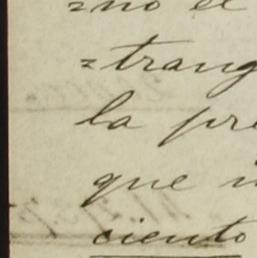 =no el
=trang
la pre
que i
ciento